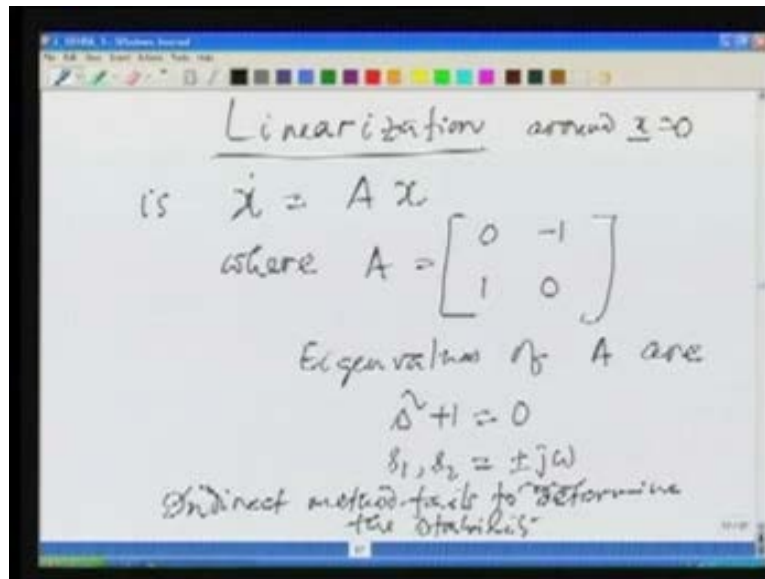 Linearization around x=0
is ẋ = A x
where A = [ 0 -1
1 0 ]
Eigenvalues of A are
s²+1 = 0
s₁, s₂ = ±jω
Indirect method fails to determine
the